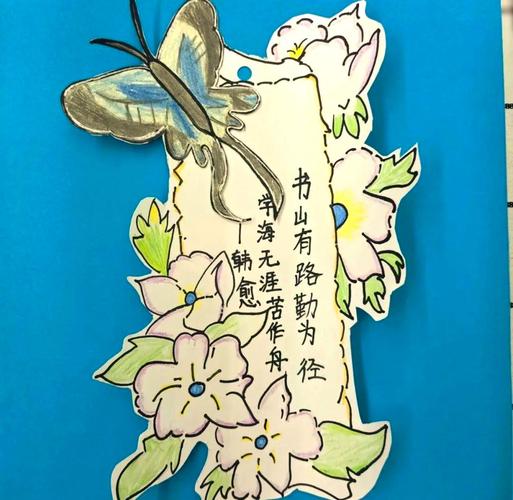 书山有路勤为径
学海无涯苦作舟
—韩愈